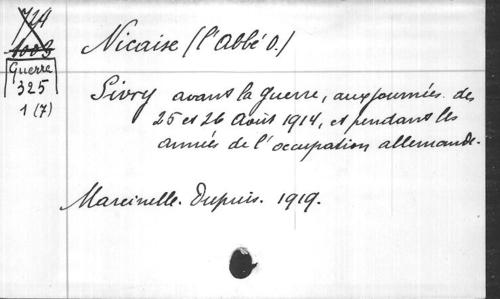 724
1003
Guerre
325
1 (7)
Nicaise (l'Abbé O.)
Sivry avant la guerre, aux journées des
25 et 26 Août 1914, et pendant les
années de l'occupation allemande.
Marcinelle. Dupuis. 1919.